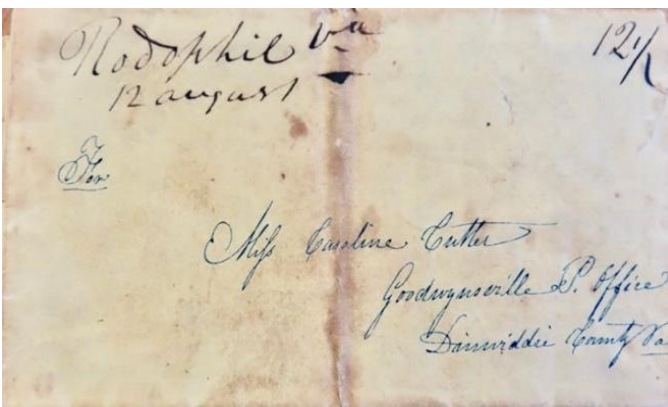 Rodophil Va
12 august
12½
For
Miss Caroline Cutler
Goodwynsville P. Office
Dinwiddie County Va